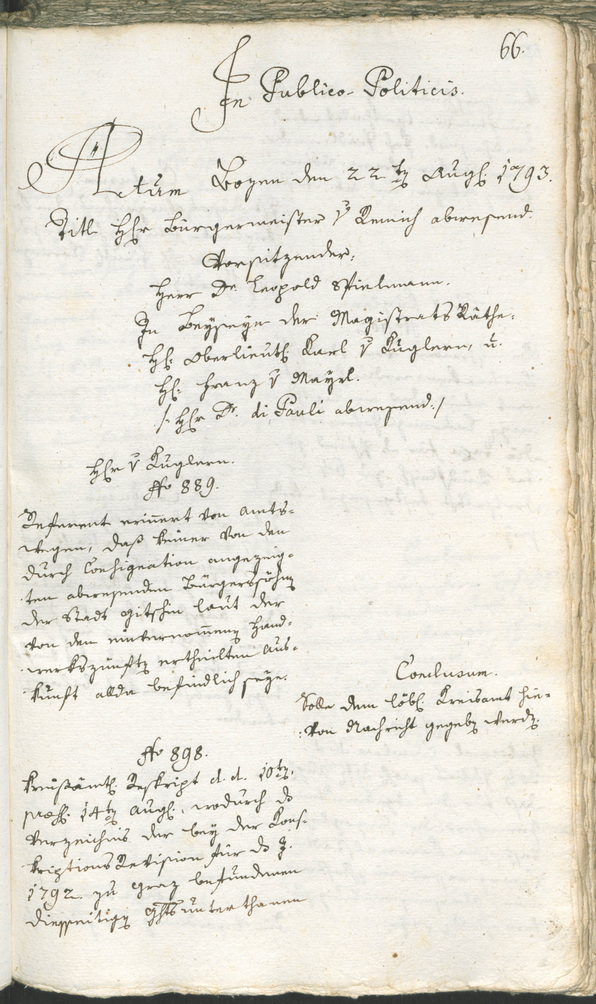 66.
In Publico-Politicis.
Actum Bozen den 22ten Augl. 1793.
Titl. Hr. Bürgermeister v. Remich abwesend.
Vorsitzender,
Herr Dr. Leopold Spielmann.
In Beyseyn der MagistratsRäthe:
Hl. Oberlieutl. Karl v. Kuglern, u.
Hl. Franz v. Mayrl.
/: Hr. Dr. di Pauli abwesend :/
Hr. v. Kuglern.
No 889.
Referent erinnert von amts-
wegen, daß keiner von den
durch Consignation angezeig-
ten abwesenden Bürgerssöhn
der Stadt Gitschin laut der
von den einvernommenen Hand-
werkszünften ertheilten Aus-
kunft allda befindlich seye.
Conclusum.
Solle dem löbl. Kreisamt hie-
von Nachricht gegeben werden.
No 898.
Kreisämtl. Reskript d. d. 10ten
præs. 14ten Augl., wodurch das
Verzeichnis der bey der Kons-
kriptions Revision für das J.
1792 zu Graz befundenen
diesseitigen Ghtsunterthanen